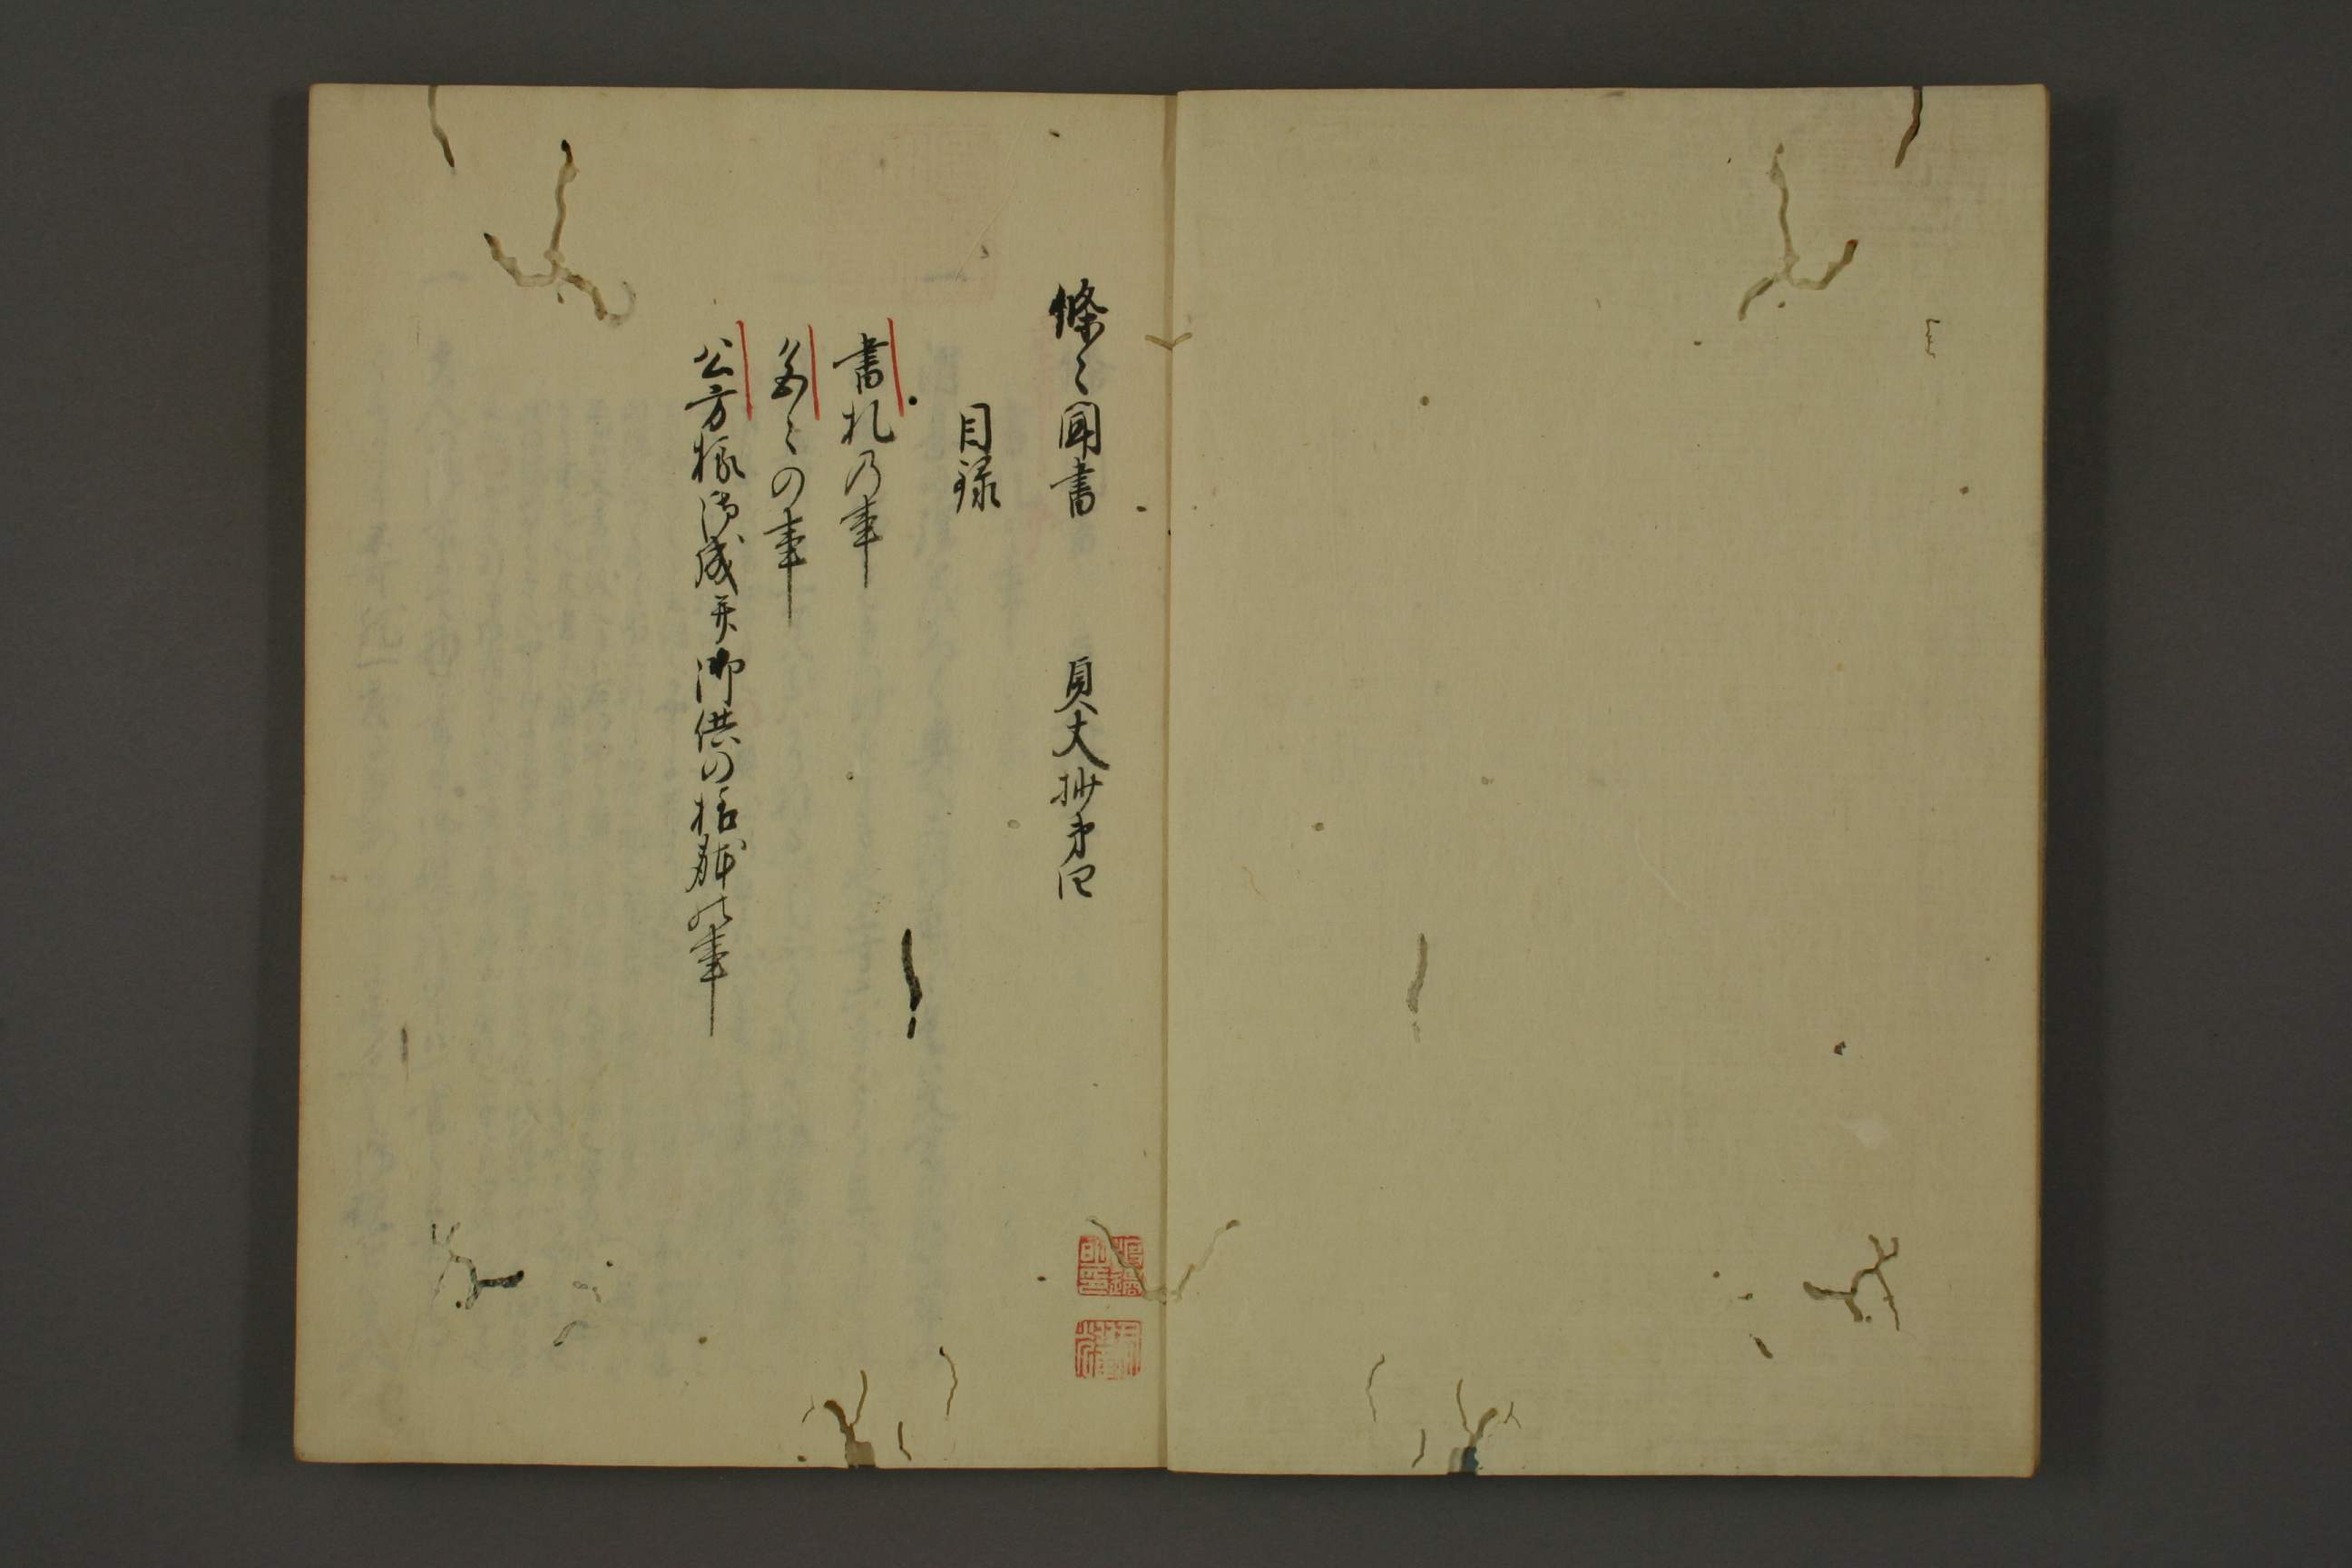 條々聞書 貞丈抄第四
目録
書札乃事
色々の事
公方様御成并御供の拵躰の事